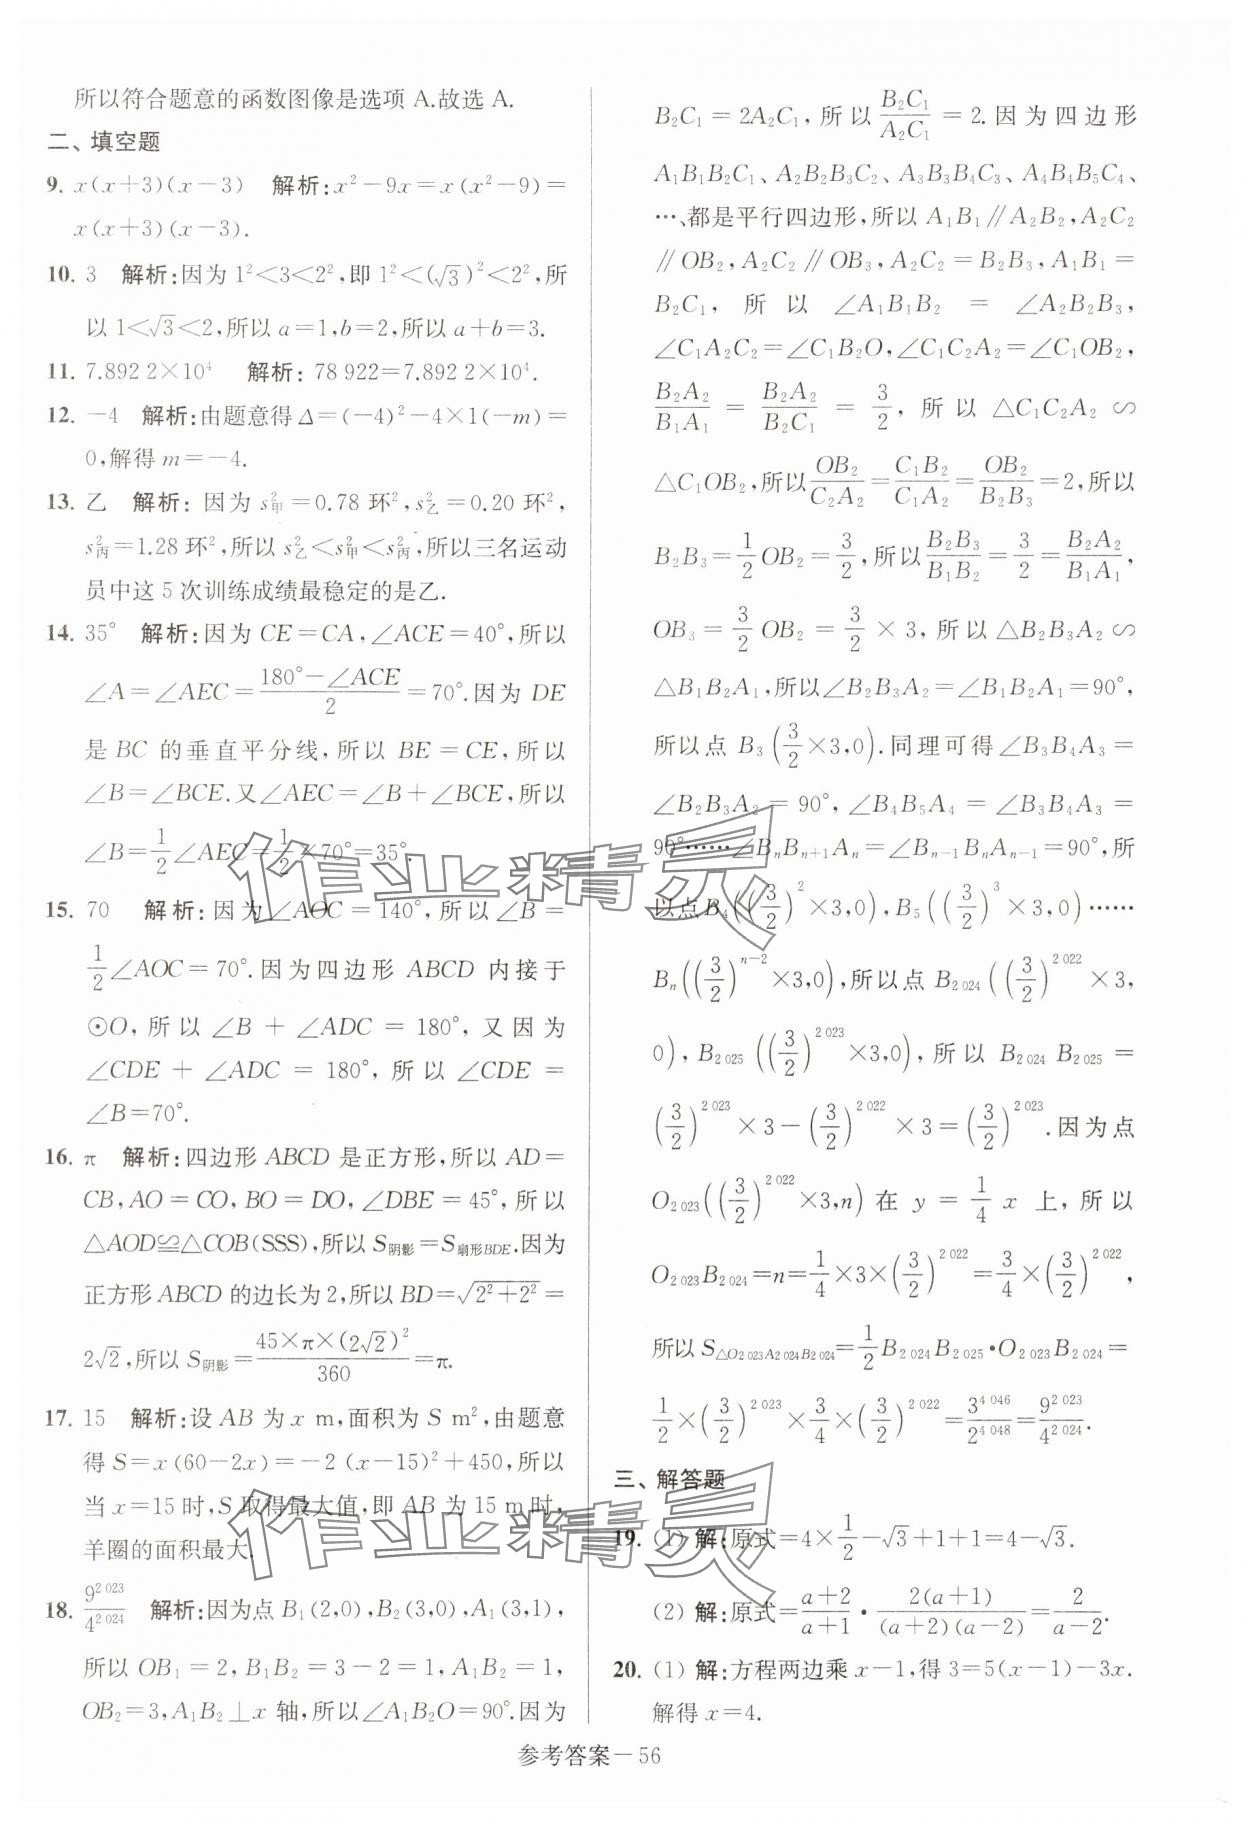 所以符合题意的函数图像是选项 A.故选 A.
二、填空题
9. x(x+3)(x-3)　解析:x²-9x=x(x²-9)=
x(x+3)(x-3).
10. 3　解析:因为 1²<3<2²,即 1²<(√3)²<2²,所
以 1<√3<2,所以 a=1,b=2,所以 a+b=3.
11. 7.892 2×10⁴　解析: 78 922=7.892 2×10⁴.
12. -4　解析:由题意得 Δ=(-4)²-4×1(-m)=
0,解得 m=-4.
13. 乙　解析: 因为 s²甲=0.78 环²,s²乙=0.20 环²,
s²丙=1.28 环²,所以 s²乙<s²甲<s²丙,所以三名运动
员中这 5 次训练成绩最稳定的是乙.
14. 35°　解析:因为 CE=CA,∠ACE=40°,所以
∠A=∠AEC=(180°-∠ACE)/2=70°.因为 DE
是 BC 的垂直平分线,所以 BE=CE,所以
∠B=∠BCE.又∠AEC=∠B+∠BCE,所以
∠B=1/2∠AEC=1/2×70°=35°.
15. 70　解析:因为∠AOC=140°,所以∠B=
1/2∠AOC=70°.因为四边形 ABCD 内接于
⊙O,所以∠B+∠ADC=180°,又因为
∠CDE+∠ADC=180°,所以∠CDE=
∠B=70°.
16. π　解析:四边形 ABCD 是正方形,所以 AD=
CB,AO=CO,BO=DO,∠DBE=45°,所以
△AOD≌△COB(SSS),所以 S阴影=S扇形BDE.因为
正方形 ABCD 的边长为 2,所以 BD=√(2²+2²)=
2√2,所以 S阴影=(45×π×(2√2)²)/360=π.
17. 15　解析:设 AB 为 x m,面积为 S m²,由题意
得 S=x(60-2x)=-2(x-15)²+450,所以
当 x=15 时,S 取得最大值,即 AB 为 15 m 时,
羊圈的面积最大.
18. 9^(2 023)/4^(2 024)　解析:因为点 B₁(2,0),B₂(3,0),A₁(3,1),
所以 OB₁=2,B₁B₂=3-2=1,A₁B₂=1,
OB₂=3,A₁B₂⊥x 轴,所以∠A₁B₂O=90°.因为
B₂C₁=2A₂C₁,所以 B₂C₁/A₂C₁=2.因为四边形
A₁B₁B₂C₁、A₂B₂B₃C₂、A₃B₃B₄C₃、A₄B₄B₅C₄、
…、都是平行四边形,所以 A₁B₁∥A₂B₂,A₂C₂
∥OB₂,A₂C₂∥OB₃,A₂C₂=B₂B₃,A₁B₁=
B₂C₁,所以∠A₁B₁B₂=∠A₂B₂B₃,
∠C₁A₂C₂=∠C₁B₂O,∠C₁C₂A₂=∠C₁OB₂,
B₂A₂/B₁A₁=B₂A₂/B₂C₁=3/2,所以△C₁C₂A₂∽
△C₁OB₂,所以 OB₂/C₂A₂=C₁B₂/C₁A₂=OB₂/B₂B₃=2,所以
B₂B₃=1/2 OB₂=3/2,所以 B₂B₃/B₁B₂=3/2=B₂A₂/B₁A₁,
OB₃=3/2 OB₂=3/2×3,所以△B₂B₃A₂∽
△B₁B₂A₁,所以∠B₂B₃A₂=∠B₁B₂A₁=90°,
所以点 B₃(3/2×3,0).同理可得∠B₃B₄A₃=
∠B₂B₃A₂=90°,∠B₄B₅A₄=∠B₃B₄A₃=
90°……∠BₙBₙ₊₁Aₙ=∠Bₙ₋₁BₙAₙ₋₁=90°,所
以点 B₄((3/2)²×3,0),B₅((3/2)³×3,0)……
Bₙ((3/2)^(n-2)×3,0),所以点 B₂ ₀₂₄((3/2)^(2 022)×3,
0),B₂ ₀₂₅((3/2)^(2 023)×3,0),所以 B₂ ₀₂₄B₂ ₀₂₅=
(3/2)^(2 023)×3-(3/2)^(2 022)×3=(3/2)^(2 023).因为点
O₂ ₀₂₃((3/2)^(2 022)×3,n)在 y=1/4 x 上,所以
O₂ ₀₂₃B₂ ₀₂₄=n=1/4×3×(3/2)^(2 022)=3/4×(3/2)^(2 022),
所以 S△O₂ ₀₂₃A₂ ₀₂₄B₂ ₀₂₄=1/2 B₂ ₀₂₄B₂ ₀₂₅•O₂ ₀₂₃B₂ ₀₂₄=
1/2×(3/2)^(2 023)×3/4×(3/2)^(2 022)=3^(4 046)/2^(4 048)=9^(2 023)/4^(2 024).
三、解答题
19. (1) 解:原式=4×1/2-√3+1+1=4-√3.
(2) 解:原式=(a+2)/(a+1)·2(a+1)/((a+2)(a-2))=2/(a-2).
20. (1) 解:方程两边乘 x-1,得 3=5(x-1)-3x.
解得 x=4.
参考答案—56
作业精灵
作业精灵